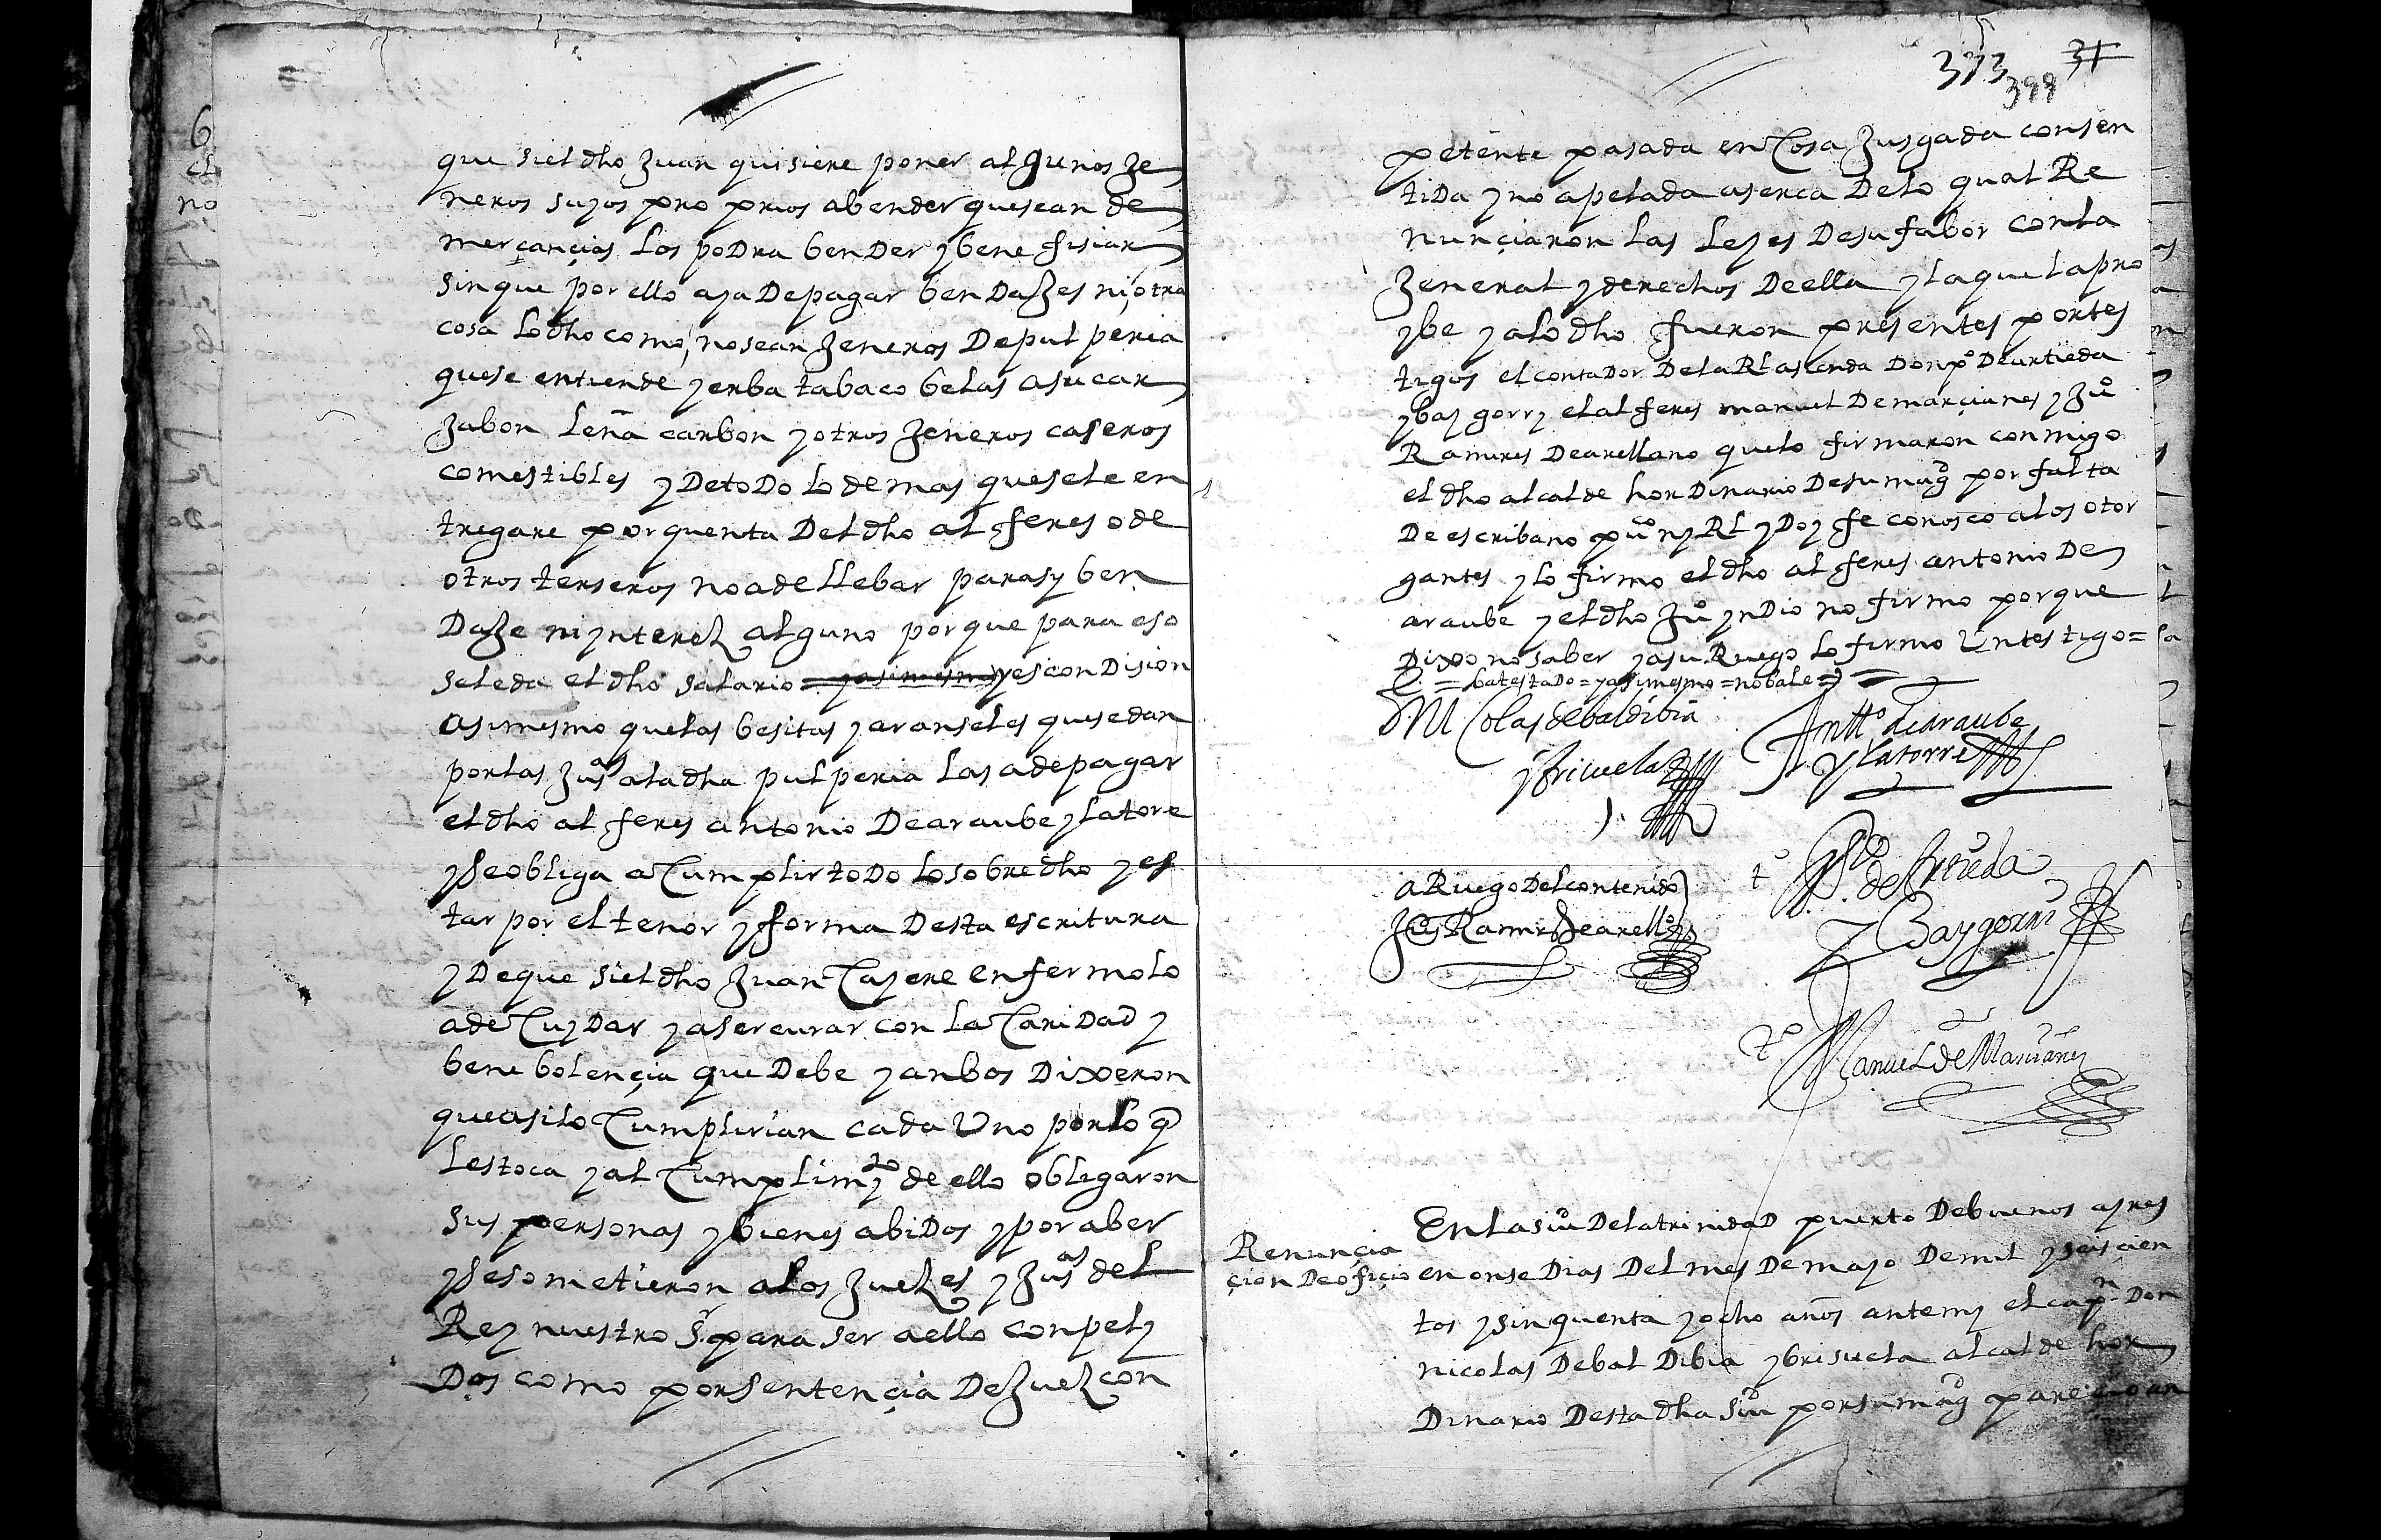 que si el dho Juan quisiere poner algunos je
neros suyos proprios a bender que sean de
merçançias los podra bender y benefisiar
sin que por ello aya de pagar bendajes ni otra
cosa lo dho como no sean jeneros de pulperia
que se entiende yerba tabaco belas asucar
jabon leña carbon y otros jeneros caseros
comestibles y de todo lo demas que se le en
tregare por quenta del dho alferes o de
otros terseros no a de llebar para sy ben
daje ni ynterez alguno porque para eso
se le da el dho salario = y asimesmo y es condision
asimesmo que las besitas y aranseles que se dan
por las Jusas a la dha pulperia las a de pagar
el dho alferes antonio de araube y latore
y se obliga a Cumplir todo lo sobredho y es
tar por el tenor y forma desta escritura
y de que si el dho Juan Cayere enfermo lo
a de Cuydar y aser curar con la Caridad y
benebolençia que debe y anbos dixeron
que asi lo Cumplirian cada uno por lo q
les toca y al Cumplimyto de ello obligaron
sus personas y bienes abidos y por aber
y se sometieron a los Juezes y Jusas del
Rey nuestro Sr para ser a ello conpely
dos como por sentençia de Juez con
373 399 31
petente pasada en Cosa Jusgada consen
tida y no apelada aserca de lo qual Re
nunçiaron las leyes de su fabor con la
Jeneral y derechos de ella y la que la pro
ybe y a lo dho fueron presentes por tes
tigos el contador de la Rl asienda Don po de urtieda
ybaygorry el alferes manuel de marçianes y Juo
Ramires de arellano que lo firmaron conmigo
el dho alcalde hordinario de su magd por falta
de escribano puco ny Rl y doy fe conosco a los otor
gantes y lo firmo el dho alferes antonio de
araube y el dho Juo yndio no firmo porque
dixo no saber y a su Ruego lo firmo un testigo =
= ba testado = y asimesmo = no bale =
D. Nicolas de baldibia
y briçuela
Antto de araube
y latorre
a Ruego del contenido
Juo Ramirs de arello
to Po de Urtieda
y Baygorri
to Manuel de Marcianes
Renunçia
çion de ofiçio
En la siud de la trinidad puerto de buenos ayres
en onse dias del mes de mayo de mil y seiscien
tos y sinquenta y ocho años ante my el capn Don
nicolas de baldibia y brisuela alcalde hor
dinario desta dha siud por su magd